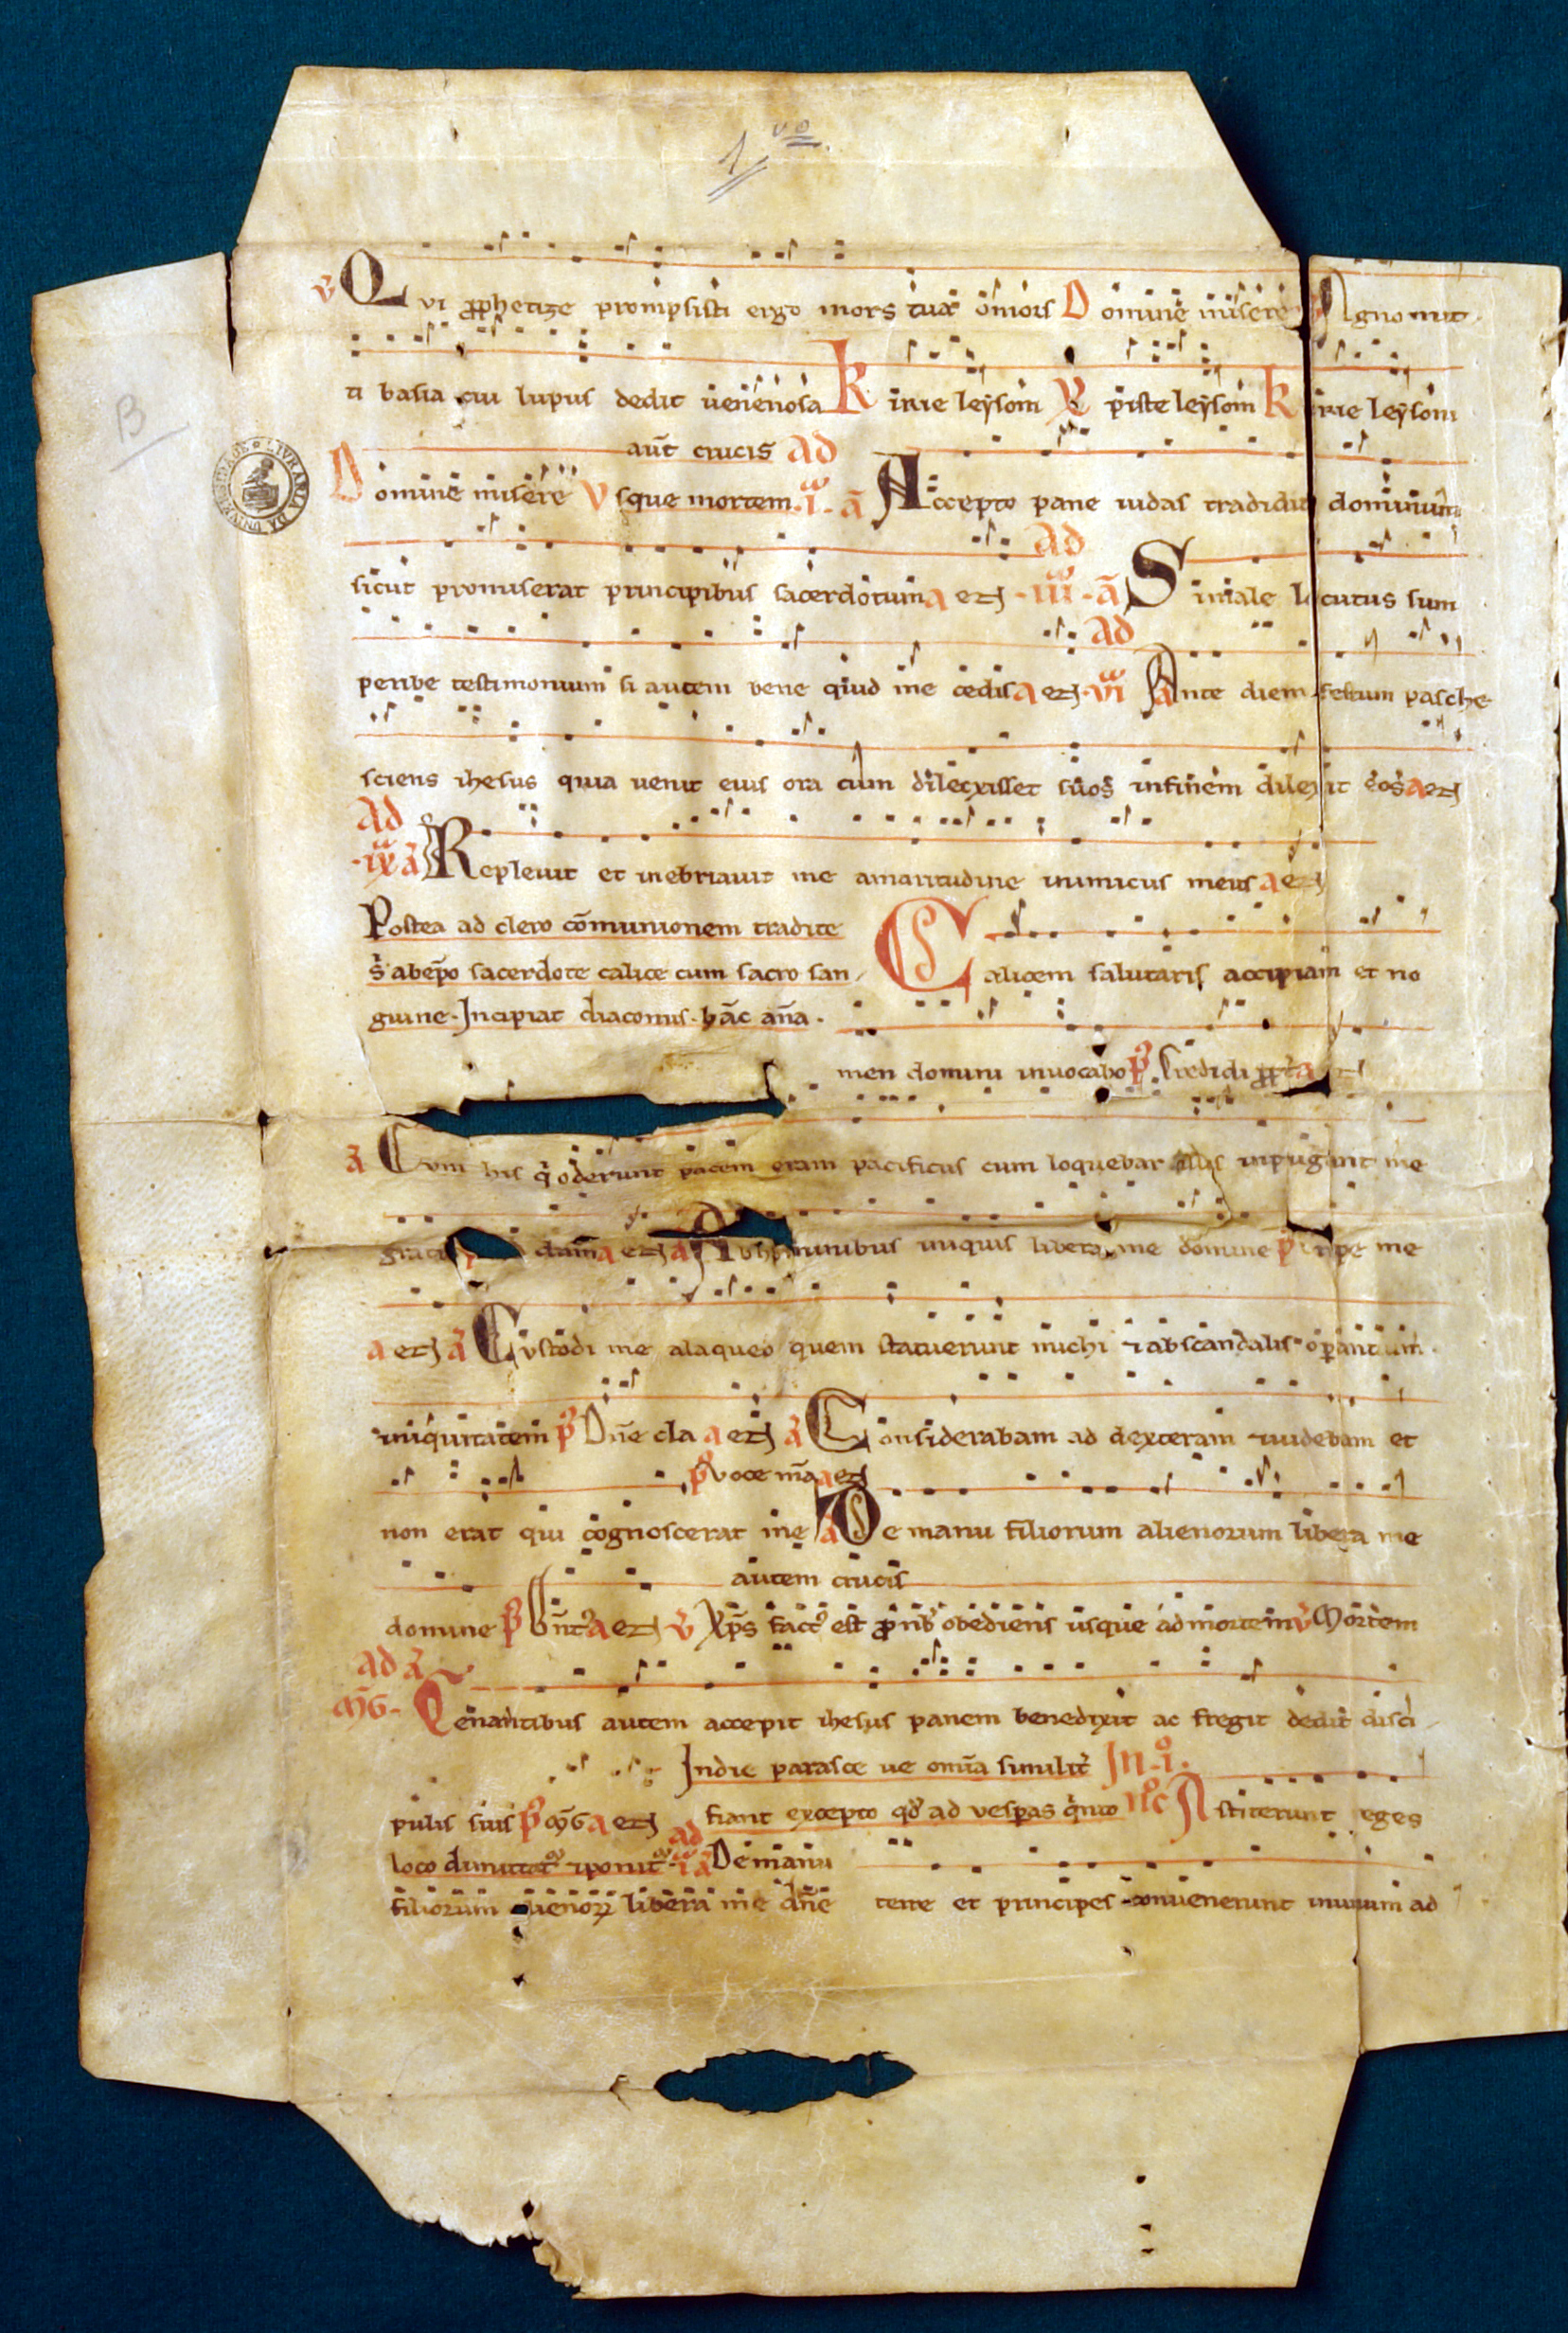 1 vo.
B
LIVRARIA DA
v̄ Qvi ꝓphetize prompsisti ergo mors tua om̄ors Domine miserere Agno mit
ti basia cui lupus dedit uenenosa Kirie leyson Xpiste leyson Kirie leyson
aūt crucis ad
Domine miserere Vsque mortem .i. ā Accepto pane iudas tradidit dominum
sicut promiserat principibus sacerdotum a eꝫ ad .iii. ā Simale locutus sum
peribe testimonium si autem bene quid me cedis a eꝫ ad .vi ā Ante diem festum pasche
sciens ihesus quia uenit eius ora cum dilexisset suos infinem dilexit eos a eꝫ
ad
.ix ā Repleuit et inebriauit me amaritudine inimicus meus a eꝫ
Postea ad clero cōmunionem tradite
sacerdote calice cum sacro san
guine . Incipiat diaconus . hāc an̄a .
Calicem salutaris accipiam et no
men domini inuocabo p̄ Credidi
ā Cvm his q̄ oderunt pacem eram pacificus cum loquebar illis inpugnant me
gratis a eꝫ ā Ab hominibus iniquis libera me domine p̄ me
a eꝫ ā Cvstodi me alaqueo quem statuerunt michi ⁊ abscandalis operantium
iniquitatem p̄ Dn̄e cla a eꝫ ā Considerabam ad dexteram ⁊uidebam et
p̄ voce m̄a a eꝫ
non erat qui cognoscerat me ā De manu filiorum alienorum libera me
autem crucis
domine p̄ a eꝫ v̄ Xp̄s fact⁹ est ꝓ nob̄ obediens usque ad mortem v̄ Mortem
ad ā
m̄G . Cenantibus autem accepit ihesus panem benedixit ac fregit dedit disci
Indie parasce ue omīa similit̄ In .i.º
pulis suis p̄ m̄G a eꝫ fiant excepto qd̄ ad vesperas q̄nto n̄oc Astiterunt eges
loco ad .i. ā De manu
filiorum alienoꝝ libera me dn̄e terre et principes conuenerunt inunum ad